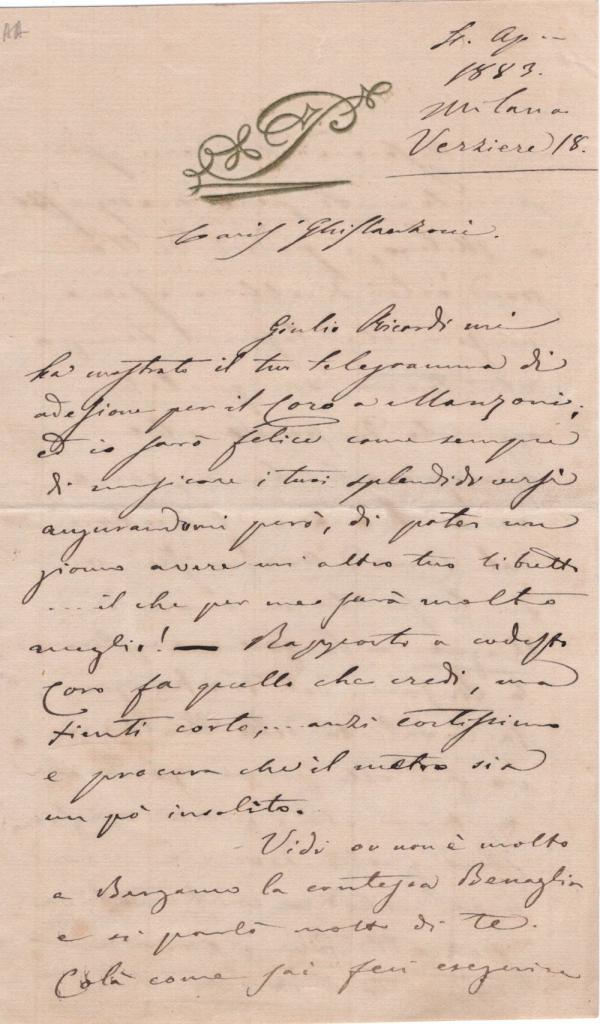 AA
Ap.
1883.
Milano
Verziere 18.
Cariss° Ghislanzoni.
Giulio Ricordi mi
ha mostrato il tuo telegramma di
adesione per il Coro a Manzoni;
ed io sarò felice come sempre
di musicare i tuoi splendidi versi
augurandomi però, di poter un
giorno avere un altro tuo libretto
... il che per me sarà molto
meglio! — Rapporto a codesto
Coro fa quello che credi, ma
tienti corto;... anzi cortissimo
e procura che il metro sia
un pò insolito.
Vidi or non è molto
a Bergamo la contessa Benaglia
e si parlò molto di te.
Colà come sai feci eseguire